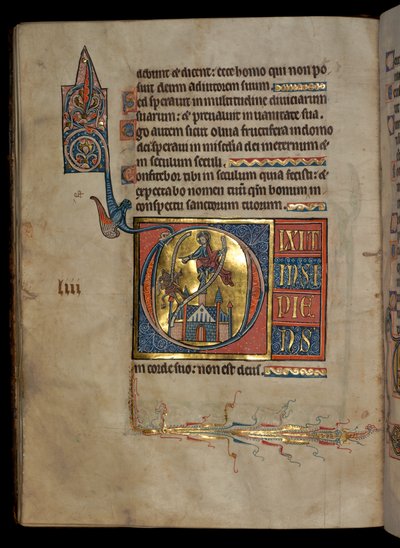 debunt et dicent: ecce homo qui non po
suit deum adiutorem suum.
Sed speravit in multitudine diviciarum
suarum: et prevaluit in vanitate sua.
Ego autem sicut oliva fructifera in domo
dei speravi in mĩa dei in eternum et
in seculum seculi.
Confitebor tibi in seculum quia fecisti: et
expectabo nomen tuũ qm̃ bonum in
conspectu sanctorum tuorum.
liii
DIXIT
INSI
PIE
NS
in corde suo: non est deus.